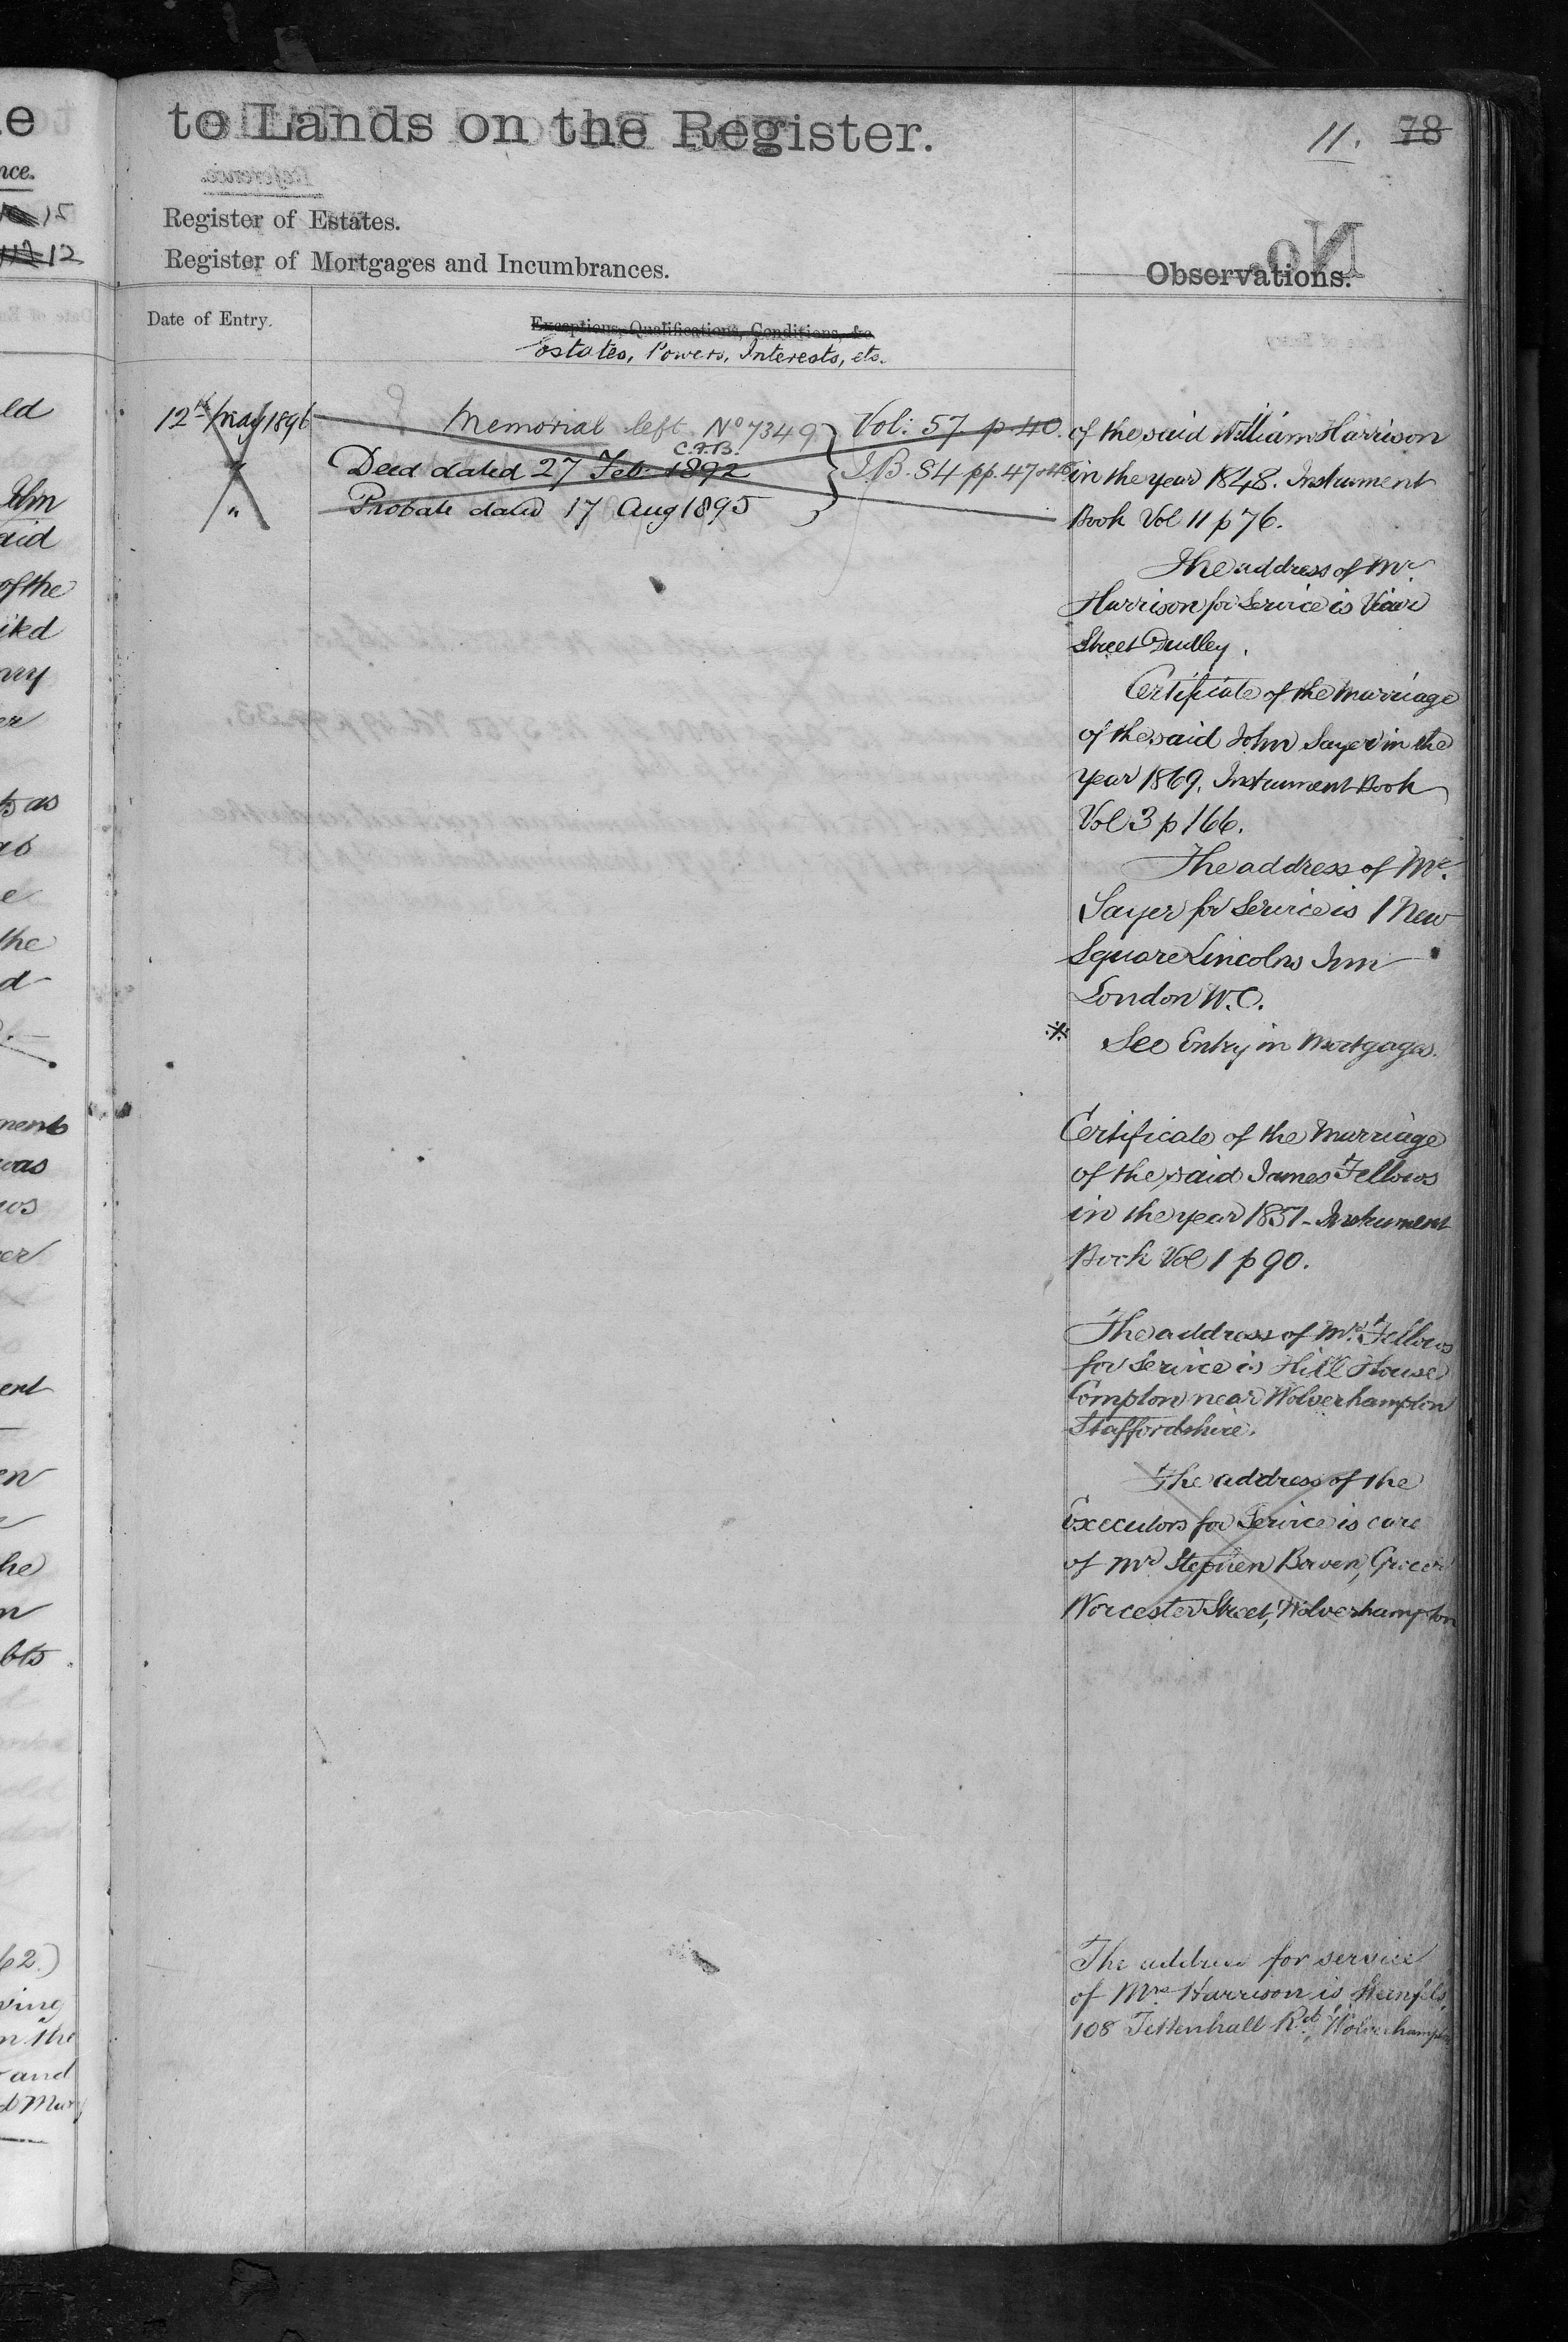 to Lands on the Register.
11. 78
Register of Estates.
Register of Mortgages and Incumbrances.
Observations.
Date of Entry.
Exceptions, Qualifications, Conditions, &c
Estates, Powers, Interests, etc.
12th May 1896 Memorial left No 7349 Vol: 57 p 40.
C.F.B.
" Deed dated 27 Feb. 1892 I.B. 84 pp. 47
" Probate dated 17 Aug 1895
of the said William Harrison
in the year 1848. Instrument
Book Vol 11 p 76.
The address of Mr.
Harrison for Service is Vicar
Street Dudley.
Certificate of the Marriage
of the said John Sayer in the
year 1869. Instrument Book
Vol 3 p 166.
The address of Mr.
Sayer for Service is 1 New
Square Lincolns Inn
London W.C.
※ See Entry in Mortgages.
Certificate of the Marriage
of the said James Fellows
in the year 1851 - Instrument
Book Vol 1 p 90.
The address of Mr. Fellows
for Service is Hill House
Compton near Wolverhampton
Staffordshire.
The address of the
Executors for Service is care
of Mr Stephen Bowen, Grocer
Worcester Street, Wolverhampton
The address for service
of Mrs Harrison is
108 Tettenhall Rd, Wolverhampton
ld
John
aid
of the
er
the
d
was
er
en
he
bts.
62.)
ving
n the
and
15
12
nce.
e